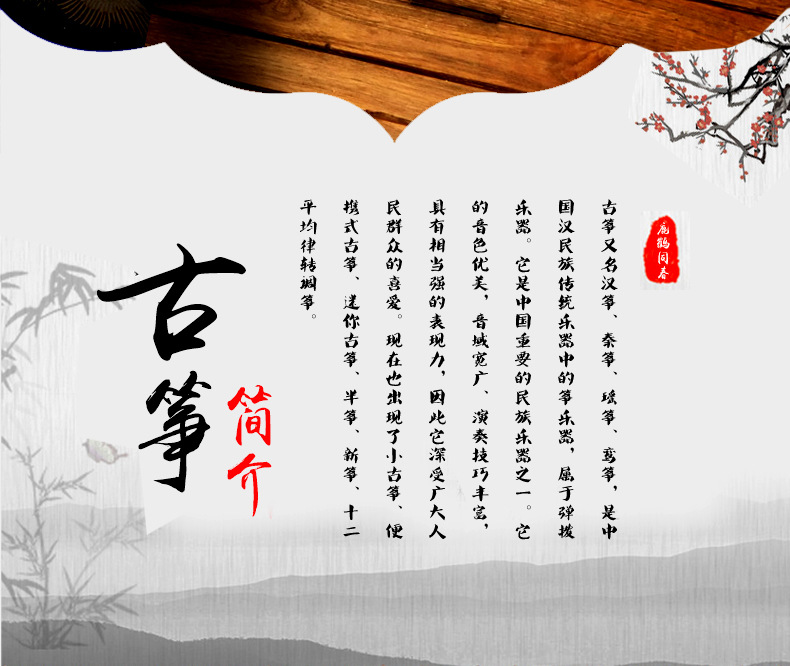 鹿鹤同春
古筝又名汉筝、秦筝、瑶筝、鸾筝，是中
国汉民族传统乐器中的筝乐器，属于弹拨
乐器。它是中国重要的民族乐器之一。它
的音色优美，音域宽广、演奏技巧丰富，
具有相当强的表现力，因此它深受广大人
民群众的喜爱。现在也出现了小古筝、便
携式古筝、迷你古筝、半筝、新筝、十二
平均律转调筝。
简介
古筝